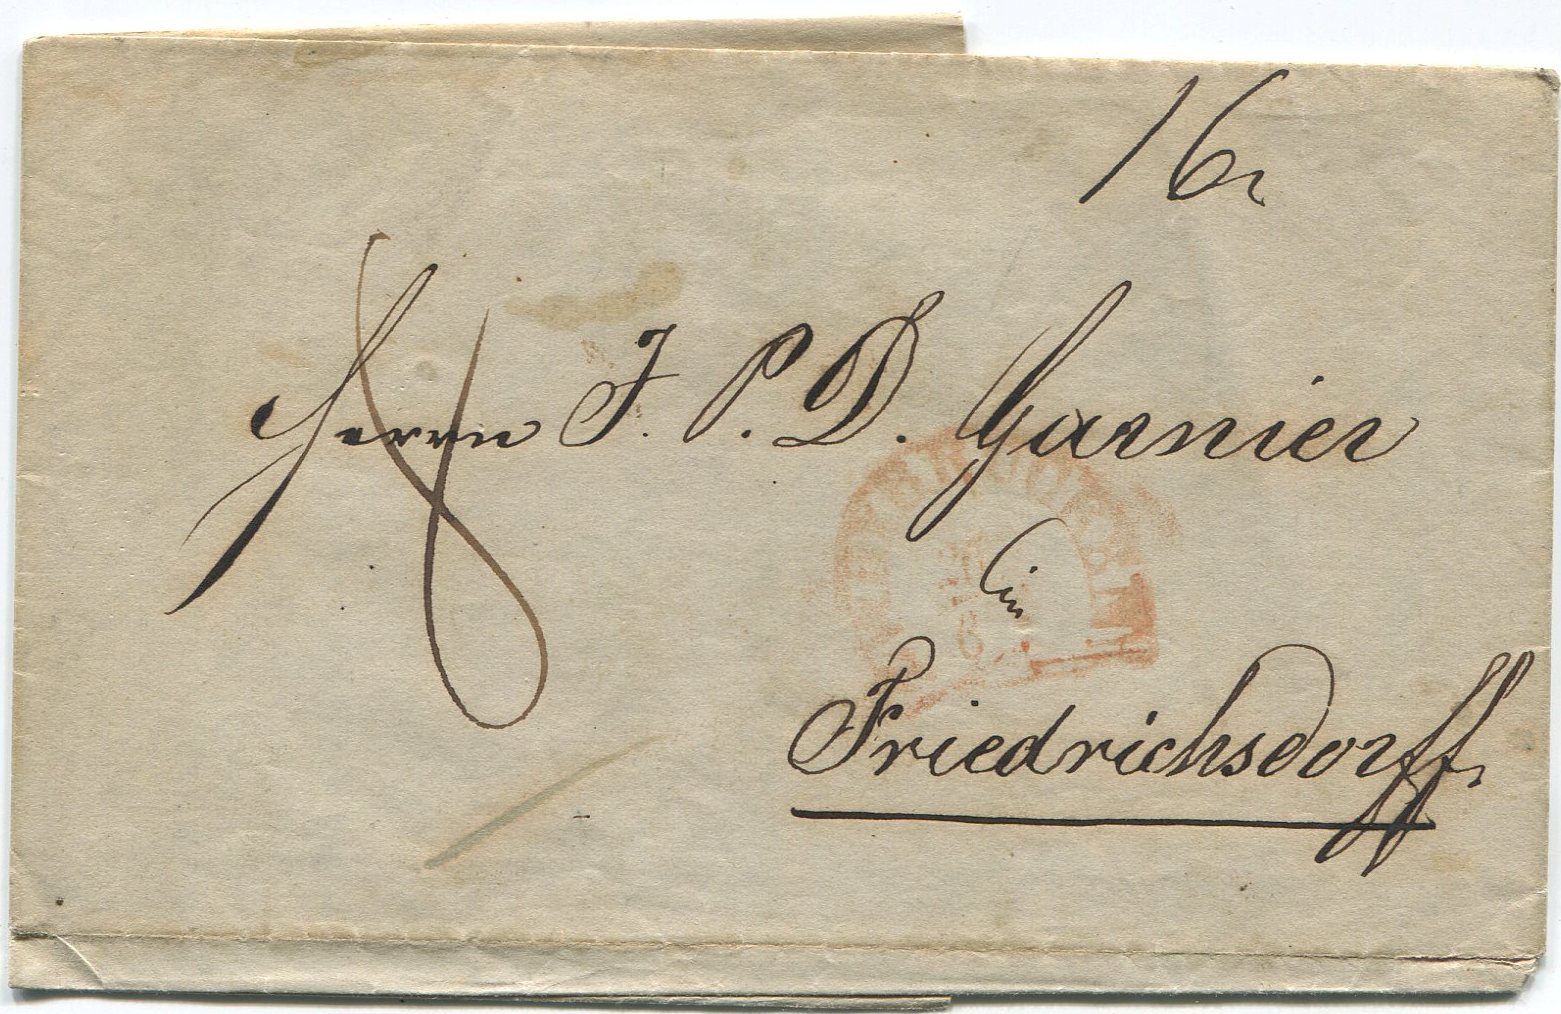 16
8
Herrn J. P. D. Garnier
in
Friedrichsdorff